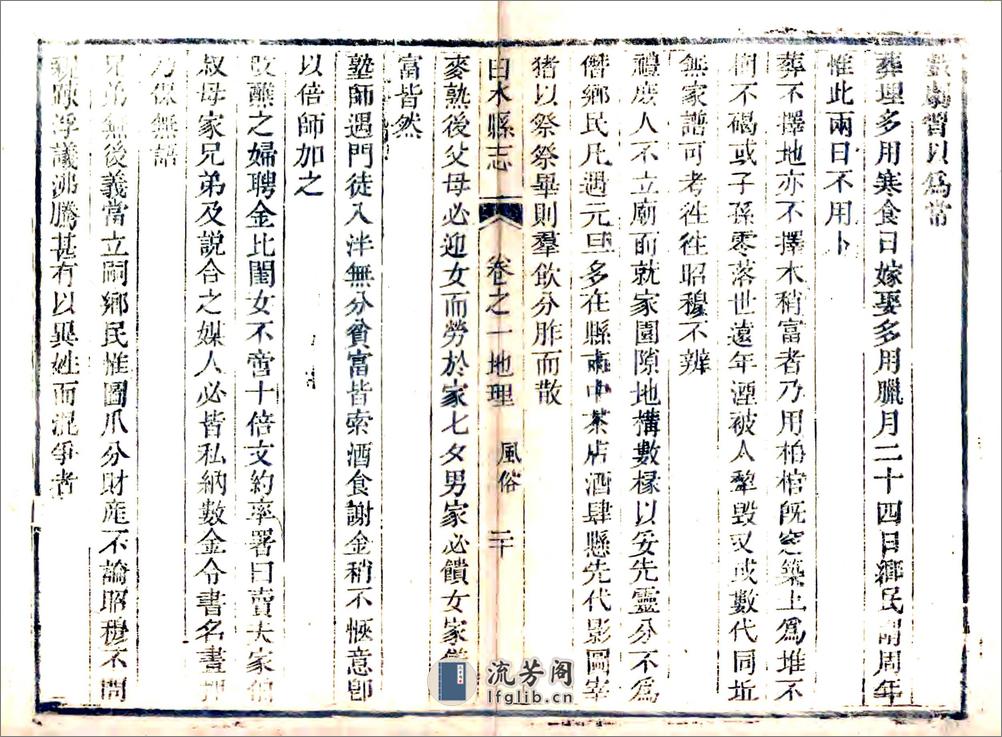 習以爲常
葬埋多用寒食日嫁娶多用臘月二十四日鄉民謂周年
惟此兩日不用卜
葬不擇地亦不擇木稍富者乃用柏棺旣窆築土爲堆不
碣或子孫零落世遠年湮被人犂毀又或數代同坵
無家譜可考徃徃昭穆不辨
禮庶人不立廟而就家園隙地構數椽以妥先靈分不爲
僭鄉民凡遇元旦多在縣中茶店酒肆懸先代影圖宰
猪以祭祭畢則羣飲分胙而散
白水縣志 卷之一地理 風俗 二十
麥熟後父母必迎女而勞於家七夕男家必饋女家
富皆然
塾師遇門徒入泮無分貧富皆索酒食謝金稍不愜意卽
以倍師加之
改醮之婦聘金比閨女不啻十倍文約率署曰賣夫家伯
叔母家兄弟及說合之媒人必皆私納數金令書名畫押
乃保無語
兄弟無後義當立嗣鄉民惟圖瓜分財産不論昭穆不問
親疎浮議沸騰甚有以異姓而混爭者
流芳阁
lfglib.cn